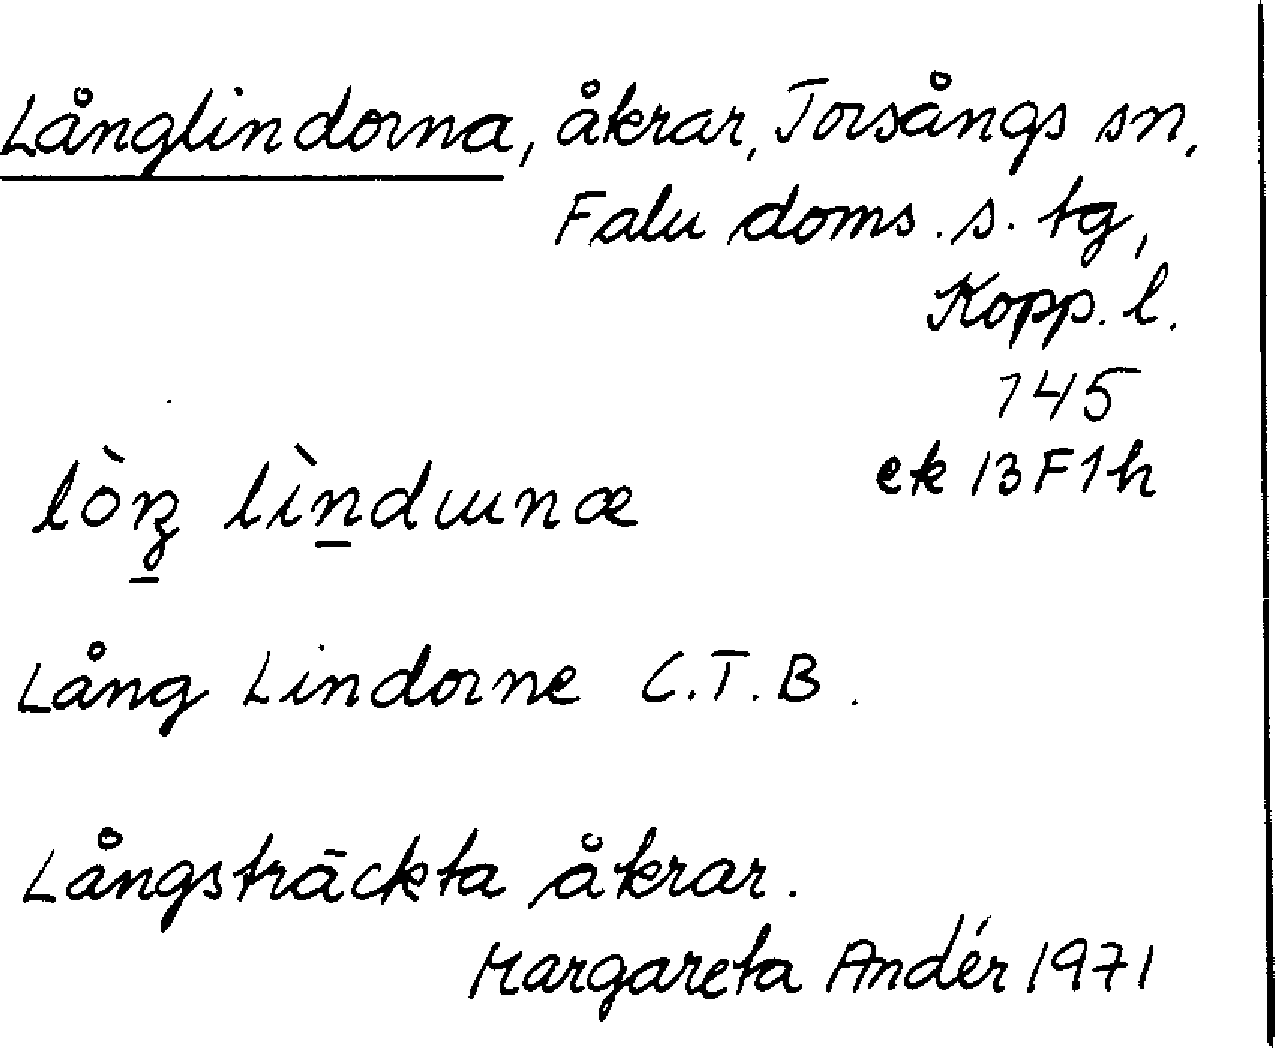 Långlindorna, åkrar, Torsångs sn,
Falu doms. s. tg,
Kopp. l.
145
ek 13F1h
lò̀ŋ̱ lìṉdɯnæ
Lång Lindorne C.T.B.
Långsträckta åkrar.
Margareta Andér 1971